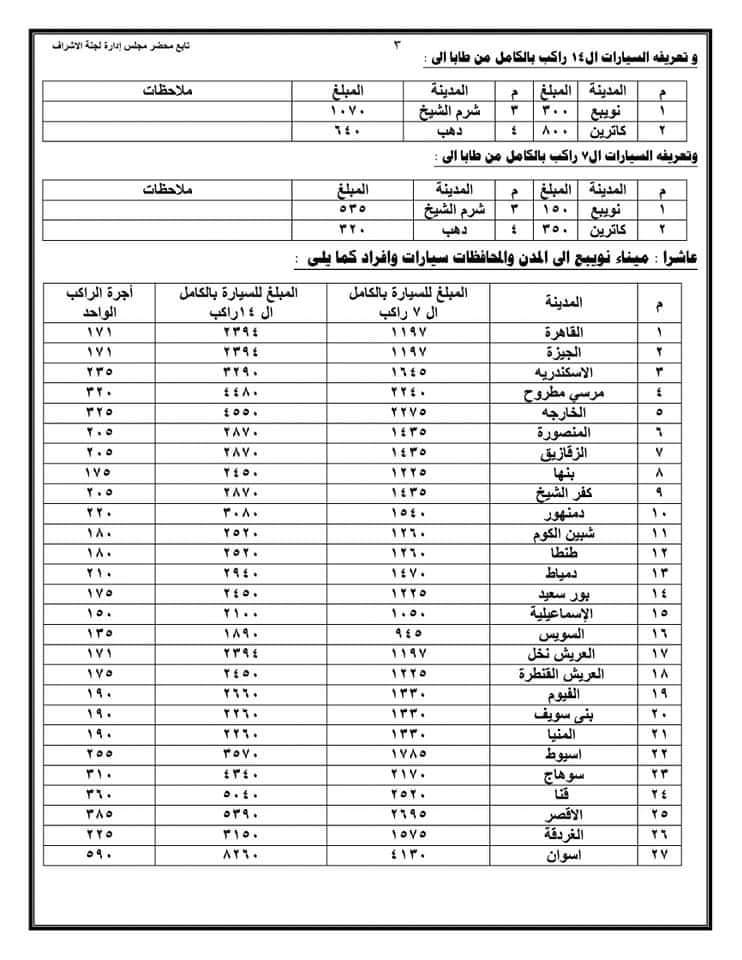 تابع محضر مجلس إدارة لجنة الاشراف ٣
و تعريفه السيارات ال١٤ راكب بالكامل من طابا الى :
م المدينة المبلغ م المدينة المبلغ ملاحظات
١ نويبع ٣٠٠ ٣ شرم الشيخ ١٠٧٠
٢ كاترين ٨٠٠ ٤ دهب ٦٤٠
وتعريفه السيارات ال٧ راكب بالكامل من طابا الى :
م المدينة المبلغ م المدينة المبلغ ملاحظات
١ نويبع ١٥٠ ٣ شرم الشيخ ٥٣٥
٢ كاترين ٣٥٠ ٤ دهب ٣٢٠
عاشرا : ميناء نويبع الى المدن والمحافظات سيارات وافراد كما يلى :
م المدينة المبلغ للسيارة بالكامل المبلغ للسيارة بالكامل أجرة الراكب
ال ٧ راكب ال ١٤راكب الواحد
١ القاهرة ١١٩٧ ٢٣٩٤ ١٧١
٢ الجيزة ١١٩٧ ٢٣٩٤ ١٧١
٣ الاسكندريه ١٦٤٥ ٣٢٩٠ ٢٣٥
٤ مرسي مطروح ٢٢٤٠ ٤٤٨٠ ٣٢٠
٥ الخارجه ٢٢٧٥ ٤٥٥٠ ٣٢٥
٦ المنصورة ١٤٣٥ ٢٨٧٠ ٢٠٥
٧ الزقازيق ١٤٣٥ ٢٨٧٠ ٢٠٥
٨ بنها ١٢٢٥ ٢٤٥٠ ١٧٥
٩ كفر الشيخ ١٤٣٥ ٢٨٧٠ ٢٠٥
١٠ دمنهور ١٥٤٠ ٣٠٨٠ ٢٢٠
١١ شبين الكوم ١٢٦٠ ٢٥٢٠ ١٨٠
١٢ طنطا ١٢٦٠ ٢٥٢٠ ١٨٠
١٣ دمياط ١٤٧٠ ٢٩٤٠ ٢١٠
١٤ بور سعيد ١٢٢٥ ٢٤٥٠ ١٧٥
١٥ الإسماعيلية ١٠٥٠ ٢١٠٠ ١٥٠
١٦ السويس ٩٤٥ ١٨٩٠ ١٣٥
١٧ العريش نخل ١١٩٧ ٢٣٩٤ ١٧١
١٨ العريش القنطرة ١٢٢٥ ٢٤٥٠ ١٧٥
١٩ الفيوم ١٣٣٠ ٢٦٦٠ ١٩٠
٢٠ بنى سويف ١٣٣٠ ٢٢٦٠ ١٩٠
٢١ المنيا ١٣٣٠ ٢٢٦٠ ١٩٠
٢٢ اسيوط ١٧٨٥ ٣٥٧٠ ٢٥٥
٢٣ سوهاج ٢١٧٠ ٤٣٤٠ ٣١٠
٢٤ قنا ٢٥٢٠ ٥٠٤٠ ٣٦٠
٢٥ الاقصر ٢٦٩٥ ٥٣٩٠ ٣٨٥
٢٦ الغردقة ١٥٧٥ ٣١٥٠ ٢٢٥
٢٧ اسوان ٤١٣٠ ٨٢٦٠ ٥٩٠